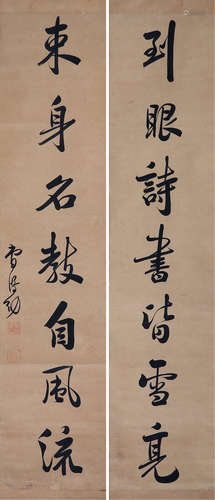 到眼詩書皆雪亮
束身名教自風流